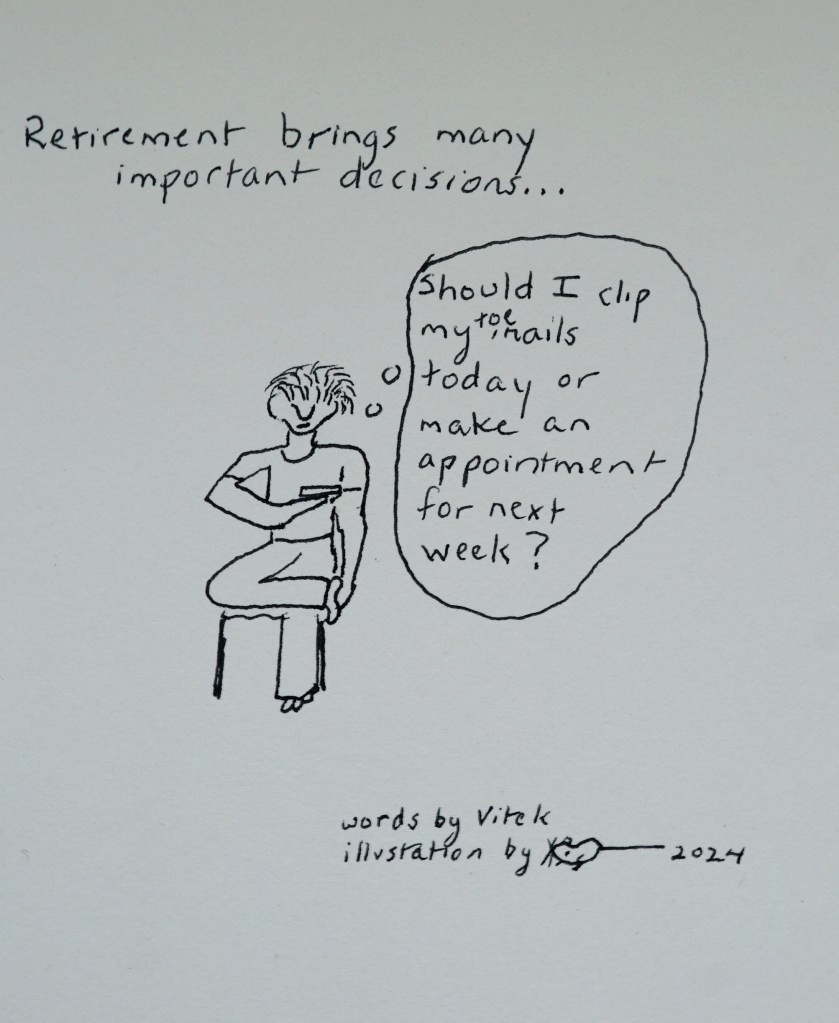 Retirement brings many
important decisions...
Should I clip
my toe nails
today or
make an
appointment
for next
week?
words by Vitek
illustration by
2024